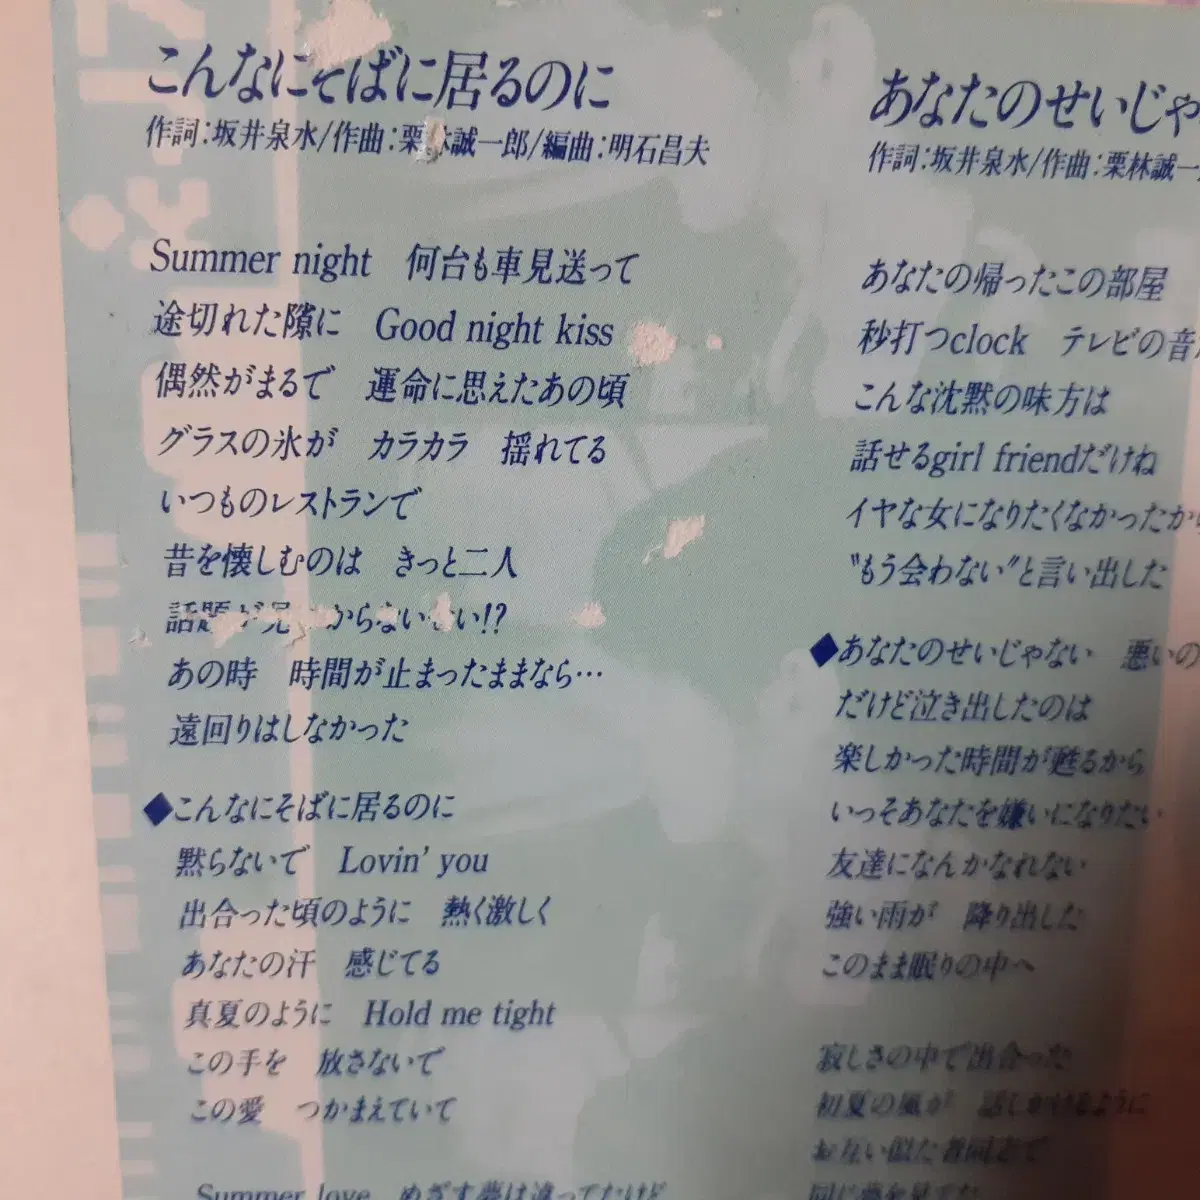 こんなにそばに居るのに
作詞:坂井泉水/作曲:栗林誠一郎/編曲:明石昌夫
Summer night 何台も車見送って
途切れた隙に Good night kiss
偶然がまるで 運命に思えたあの頃
グラスの氷が カラカラ 揺れてる
いつものレストランで
昔を懐しむのは きっと二人
話題が見 からない い!?
あの時 時間が止まったままなら…
遠回りはしなかった
◆こんなにそばに居るのに
黙らないで Lovin' you
出合った頃のように 熱く激しく
あなたの汗 感じてる
真夏のように Hold me tight
この手を 放さないで
この愛 つかまえていて
Summer love めざす夢は違ってたけど
あなたのせいじゃ
作詞:坂井泉水/作曲:栗林誠一
あなたの帰ったこの部屋
秒打つclock テレビの音
こんな沈黙の味方は
話せるgirl friendだけね
イヤな女になりたくなかったから
"もう会わない"と言い出した
◆あなたのせいじゃない 悪いの
だけど泣き出したのは
楽しかった時間が甦るから
いっそあなたを嫌いになりたい
友達になんかなれない
強い雨が 降り出した
このまま眠りの中へ
寂しさの中で出合った
初夏の風が 話しかけるように
お互い似た者同志で
同じ夢を見てた